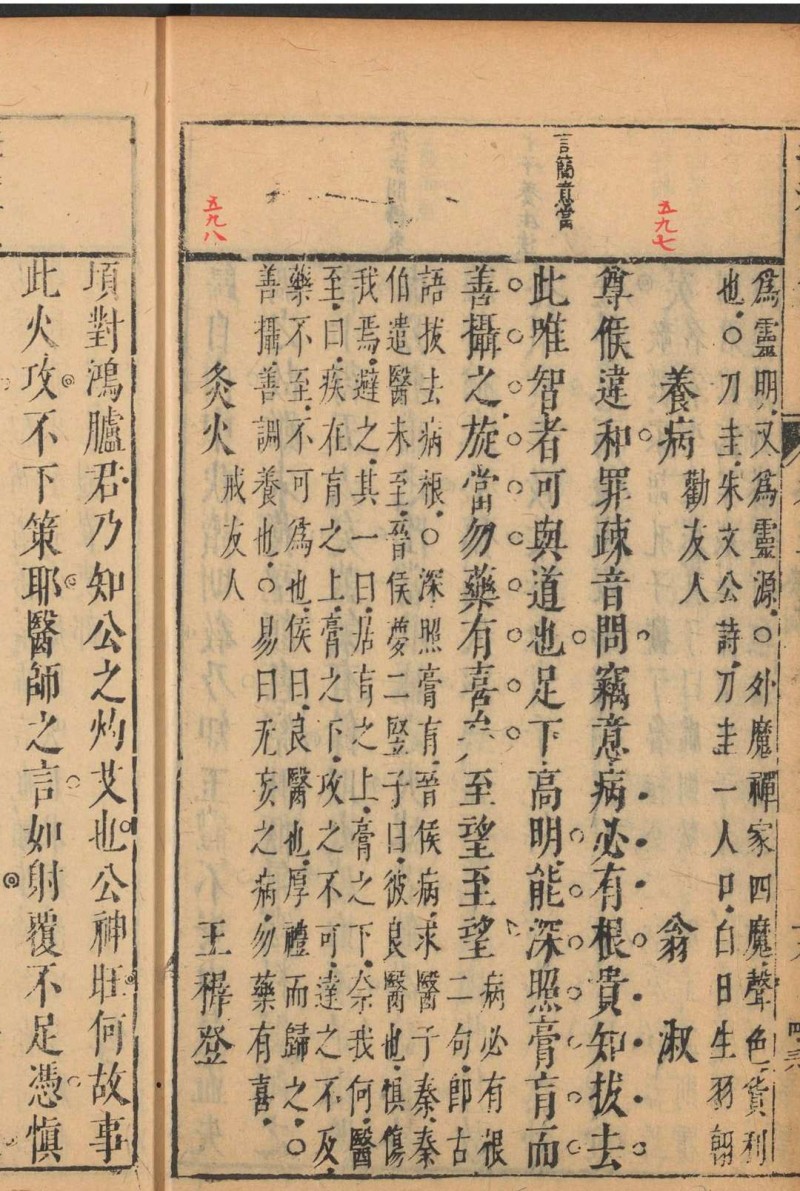 為靈明又為靈源○外魔禪家四魔聲色貨利
也○刀圭朱文公詩刀圭一人口白日生羽翰
五九七
養病 勸友人 翁淑
尊候違和罪疎音問竊意病必有根貴知拔去
言簡意當
此唯智者可與道也足下高明能深照膏肓而
善攝之旋當勿藥有喜矣至望至望病必有根二句卽古
語拔去病根○深照膏肓晉侯病求醫于秦秦
伯遣醫未至晉侯夢二竪子曰彼良醫也懼傷
我焉避之其一曰居肓之上膏之下奈我何醫
至曰疾在肓之上膏之下攻之不可達之不及
藥不至不可為也侯曰良醫也厚禮而歸之○
善攝善調養也○易曰无妄之病勿藥有喜
五九八
灸火 戒友人 王穉登
項對鴻臚君乃知公之灼艾也公神旺何故事
此火攻不下策耶醫師之言如射覆不足憑慎